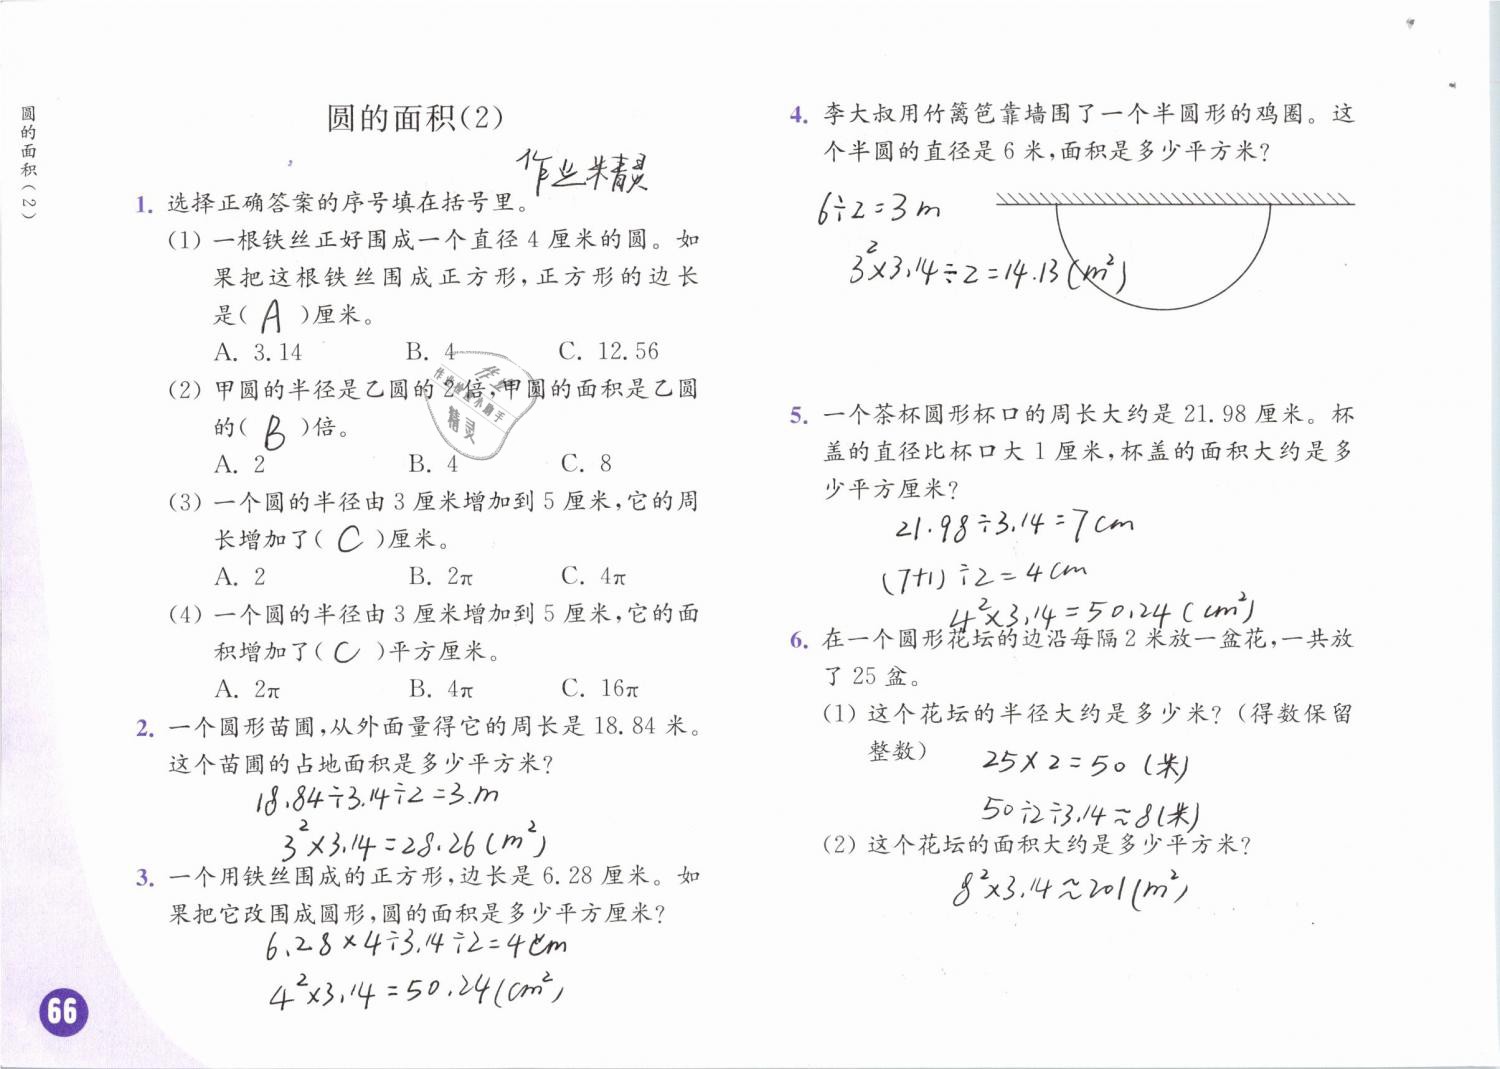 圆的面积(2)
圆的面积(2)
作业精灵
1. 选择正确答案的序号填在括号里。
(1) 一根铁丝正好围成一个直径 4 厘米的圆。如
果把这根铁丝围成正方形,正方形的边长
是( A )厘米。
A. 3.14 B. 4 C. 12.56
(2) 甲圆的半径是乙圆的 2 倍,甲圆的面积是乙圆
的( B )倍。
A. 2 B. 4 C. 8
作业
作业检查小助手
精灵
(3) 一个圆的半径由 3 厘米增加到 5 厘米,它的周
长增加了( C )厘米。
A. 2 B. 2π C. 4π
(4) 一个圆的半径由 3 厘米增加到 5 厘米,它的面
积增加了( C )平方厘米。
A. 2π B. 4π C. 16π
2. 一个圆形苗圃,从外面量得它的周长是 18.84 米。
这个苗圃的占地面积是多少平方米?
18.84÷3.14÷2=3.m
3²×3.14=28.26(m²)
3. 一个用铁丝围成的正方形,边长是 6.28 厘米。如
果把它改围成圆形,圆的面积是多少平方厘米?
6.28×4÷3.14÷2=4cm
4²×3.14=50.24(cm²)
66
4. 李大叔用竹篱笆靠墙围了一个半圆形的鸡圈。这
个半圆的直径是 6 米,面积是多少平方米?
6÷2=3m
3²×3.14÷2=14.13(m²)
5. 一个茶杯圆形杯口的周长大约是 21.98 厘米。杯
盖的直径比杯口大 1 厘米,杯盖的面积大约是多
少平方厘米?
21.98÷3.14=7cm
(7+1)÷2=4cm
4²×3.14=50.24(cm²)
6. 在一个圆形花坛的边沿每隔 2 米放一盆花,一共放
了 25 盆。
(1) 这个花坛的半径大约是多少米? (得数保留
整数)
25×2=50(米)
50÷2÷3.14≈8(米)
(2) 这个花坛的面积大约是多少平方米?
8²×3.14≈201(m²)